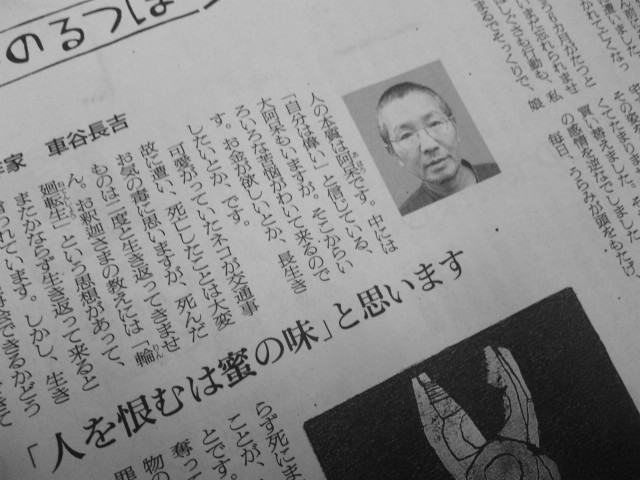 のるつぼ
買い替えました。
の感情を逆なでしました。
毎日、うらみが頭をもたげ
家 車谷長吉
人の本質は阿呆です。中には
「自分は偉い」と信じている、
大阿呆もいますが。そこからい
ろいろな苦悩がわいて来るので
す。お金が欲しいとか、長生き
したいとか、です。
可愛がっていたネコが交通事
故に遭い、死亡したことは大変
お気の毒に思いますが、死んだ
ものは二度と生き返ってきませ
ん。お釈迦さまの教えには「輪
廻転生」という思想があって、
またかならず生き返って来ると
われています。しかし、生き
会できるかどう
「人を恨むは蜜の味」と思います
らず死にま
ことが、
とです。
奪っ
物の
罪